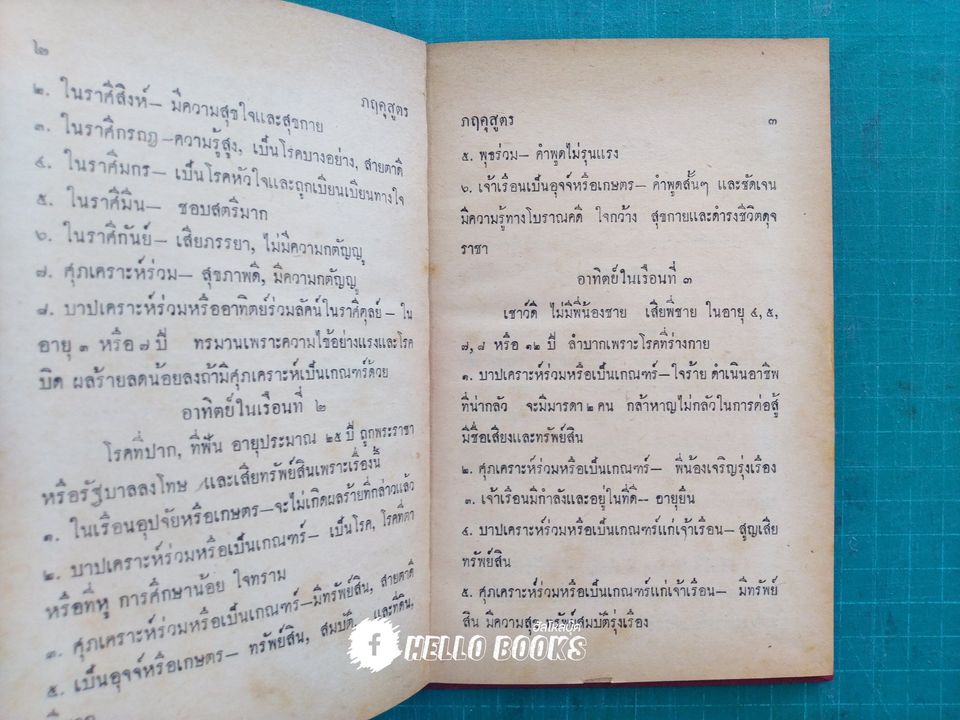 ๒
ภฤคุสูตร
๒. ในราศีสิงห์— มีความสุขใจและสุขกาย
๓. ในราศีกรกฎ—ความรู้สูง, เป็นโรคบางอย่าง, สายตาดี
๔. ในราศีมกร— เป็นโรคหัวใจและถูกเบียนเบียนทางใจ
๕. ในราศีมีน— ชอบสตรีมาก
๖. ในราศีกันย์— เสียภรรยา, ไม่มีความกตัญญู
๗. ศุภเคราะห์ร่วม— สุขภาพดี, มีความกตัญญู
๘. บาปเคราะห์ร่วมหรืออาทิตย์ร่วมลัคน์ในราศีตุลย์— ใน
อายุ ๓ หรือ ๗ ปี ทรมานเพราะความไข้อย่างแรงและโรค
บิด ผลร้ายลดน้อยลงถ้ามีศุภเคราะห์เป็นเกณฑร์ด้วย
อาทิตย์ในเรือนที่ ๒
โรคที่ปาก, ที่ฟัน อายุประมาณ ๒๕ ปี ถูกพระราชา
หรือรัฐบาลลงโทษ และเสียทรัพย์สินเพราะเรื่องนี้
๑. ในเรือนอุปจัยหรือเกษตร—จะไม่เกิดผลร้ายที่กล่าวแล้ว
๒. บาปเคราะห์ร่วมหรือเป็นเกณฑร์— เป็นโรค, โรคที่ตา
หรือที่หู การศึกษาน้อย ใจทราม
๓. ศุภเคราะห์ร่วมหรือเป็นเกณฑร์—มีทรัพย์สิน, สายตาดี
๔. เป็นอุจจ์หรือเกษตร— ทรัพย์สิน, สมบัติ และที่ดิน,
ภฤคุสูตร ๓
๕. พุธร่วม— คำพูดไม่รุนแรง
๖. เจ้าเรือนเป็นอุจจ์หรือเกษตร— คำพูดสั้นๆ และชัดเจน
มีความรู้ทางโบราณคดี ใจกว้าง สุขกายและดำรงชีวิตดุจ
ราชา
อาทิตย์ในเรือนที่ ๓
เชาว์ดี ไม่มีพี่น้องชาย เสียพี่ชาย ในอายุ ๔, ๕,
๗, ๘ หรือ ๑๒ ปี ลำบากเพราะโรคที่ร่างกาย
๑. บาปเคราะห์ร่วมหรือเป็นเกณฑร์—ใจร้าย ดำเนินอาชีพ
ที่น่ากลัว จะมีมารดา ๒ คน กล้าหาญไม่กลัวในการต่อสู้
มีชื่อเสียงและทรัพย์สิน
๒. ศุภเคราะห์ร่วมหรือเป็นเกณฑร์— พี่น้องเจริญรุ่งเรือง
๓. เจ้าเรือนมีกำลังและอยู่ในที่ดี-- อายุยืน
๔. บาปเคราะห์ร่วมหรือเป็นเกณฑร์แก่เจ้าเรือน— สูญเสีย
ทรัพย์สิน
๕. ศุภเคราะห์ร่วมหรือเป็นเกณฑร์แก่เจ้าเรือน— มีทรัพย์
สิน มีความสุข ทรัพย์สมบัติรุ่งเรือง
f
HELLO BOOKS